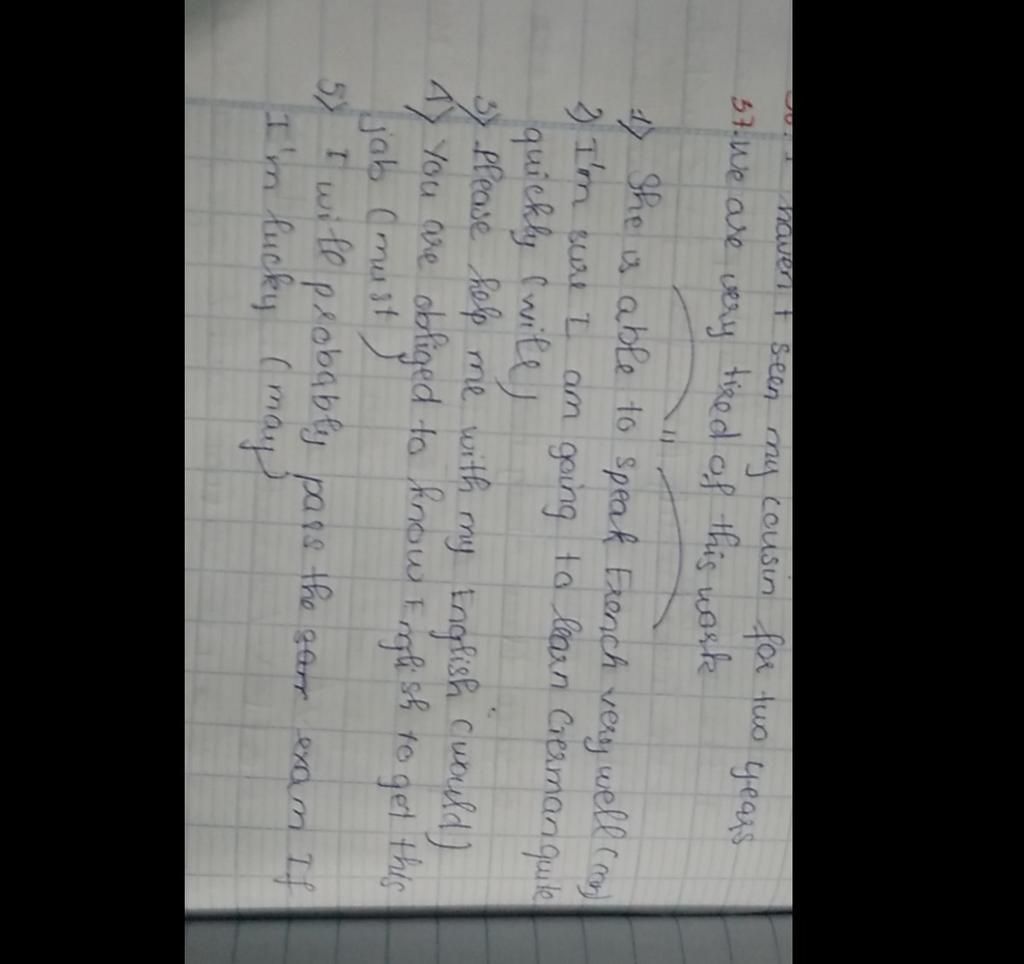 haven't seen my cousin for two years
57. We are very tired of this work
"
1) She is able to speak French very well (can)
2) I'm sure I am going to learn German quite
quickly (will)
3) Please help me with my English (would)
4) You are obliged to know English to get this
job (must)
5) I will probably pass the exam If
I'm lucky (may)